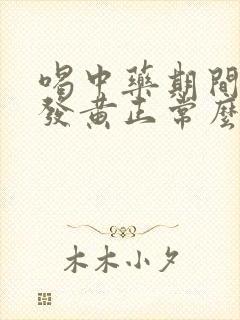 喝中藥期間
發黃正常麼
木木小夕